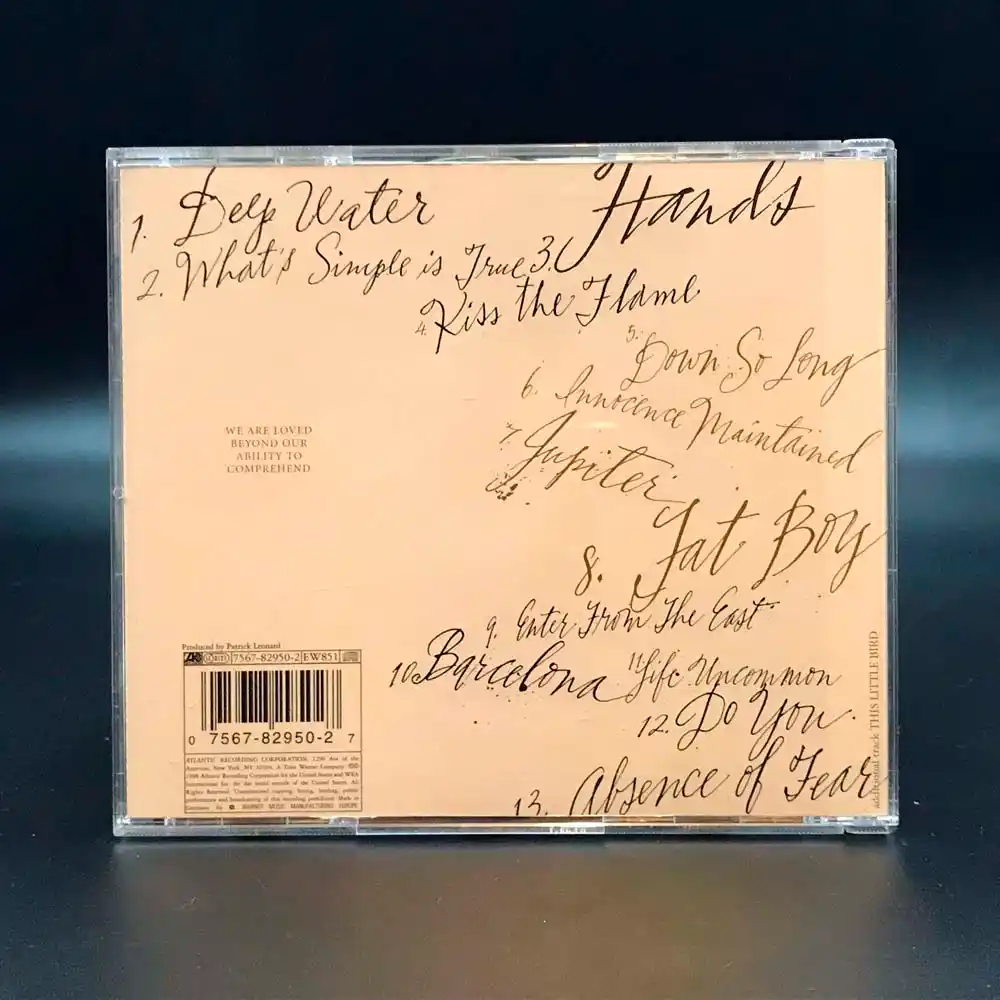 1. Deep Water
2. What's Simple is True
3. Hands
4. Kiss the Flame
5. Down So Long
6. Innocence Maintained
7. Jupiter
8. Fat Boy
9. Enter From The East
10. Barcelona
11. Life Uncommon
12. Do You
13. Absence of Fear
additional track THIS LITTLE BIRD
WE ARE LOVED
BEYOND OUR
ABILITY TO
COMPREHEND
Produced by Patrick Leonard
7567-82950-2 EW851
0 7567-82950-2 7
ATLANTIC RECORDING CORPORATION, 1290 Ave of the
Americas, New York, NY A Time Warner Company
1998 Atlantic Recording Corporation for the United States and WEA
International for the world outside of the United States. All
Rights Reserved. Unauthorized copying, hiring, lending, public
performance and broadcasting of this recording prohibited. Made in
Germany by WARNER MUSIC MANUFACTURING EUROPE